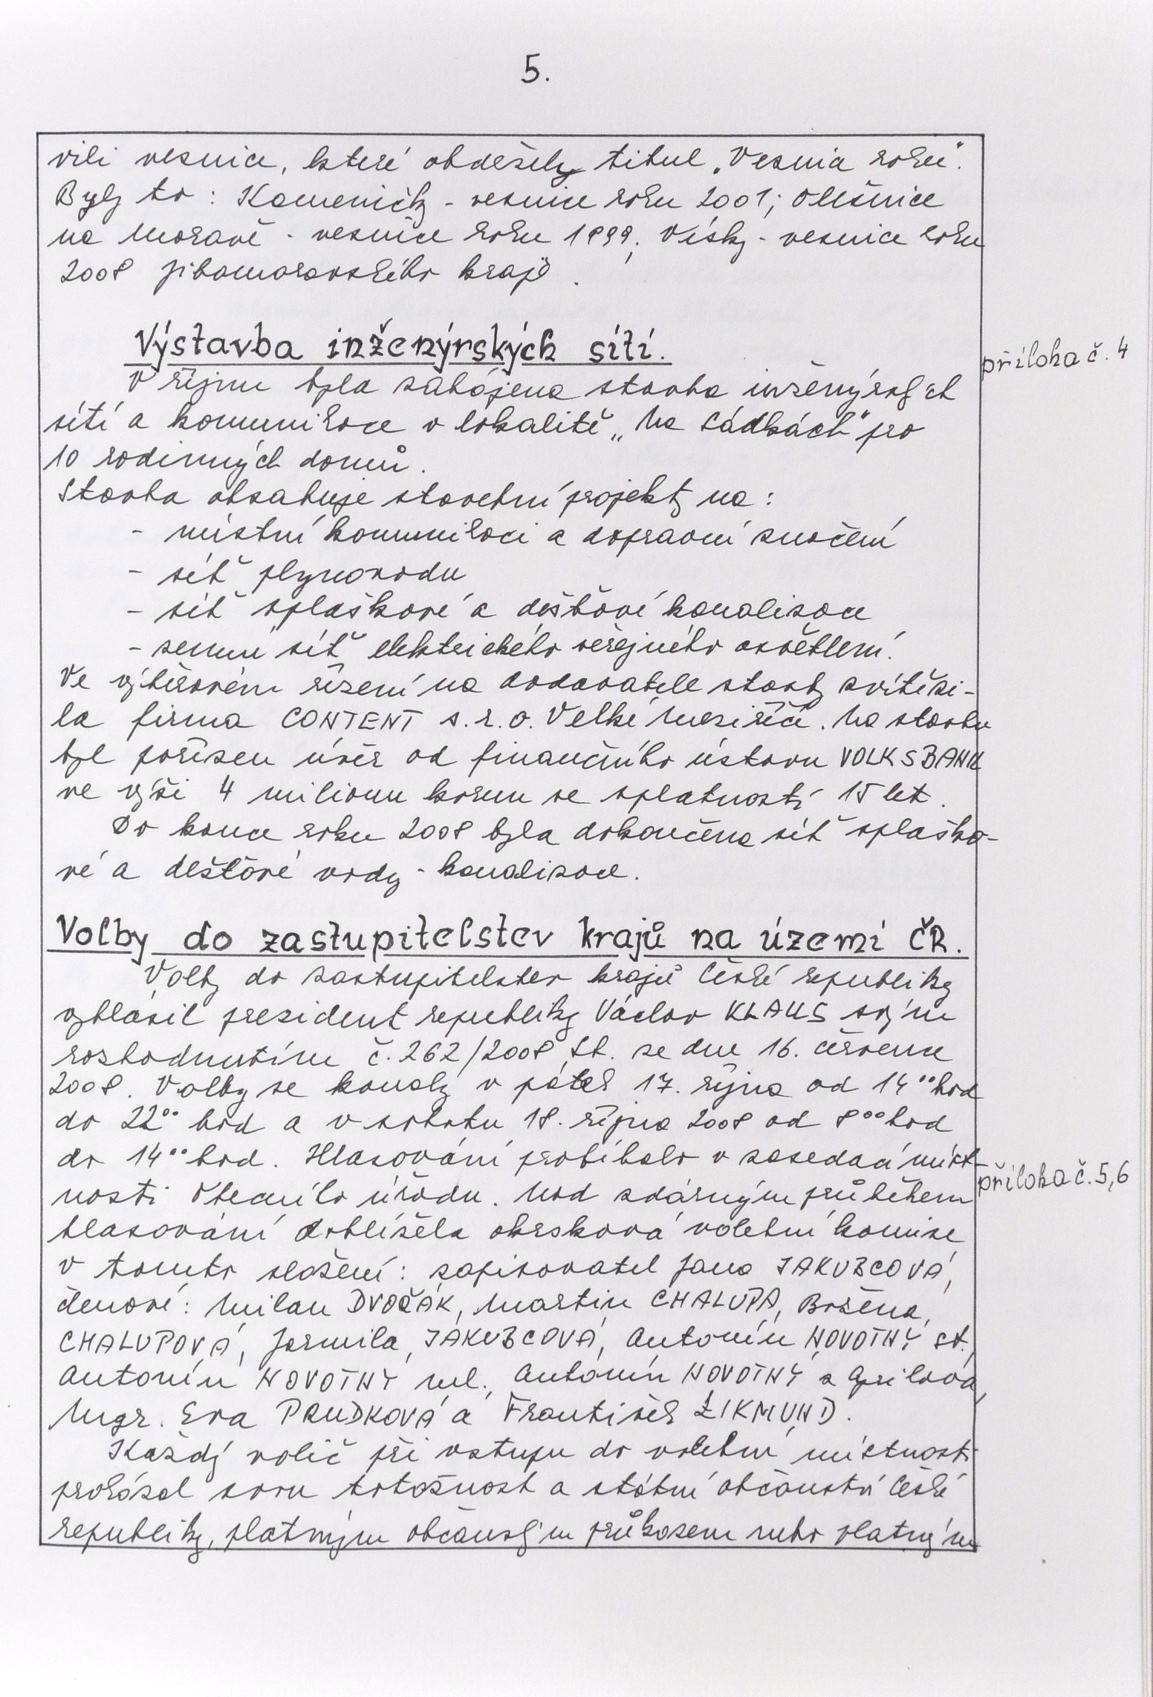 5.
vili vesnice, které obdržely titul „Vesnice roku“.
Byly to: Kameničky - vesnice roku 2001; Olešnice
na Moravě - vesnice roku 1999; Vísky - vesnice roku
2008 Jihomoravského kraje.
Výstavba inženýrských sítí.
příloha č. 4
V říjnu byla zahájena stavba inženýrských
sítí a komunikace v lokalitě „Na sádkách“ pro
10 rodinných domů.
Stavba obsahuje stavební projekty na:
- místní komunikaci a dopravní značení
- síť plynovodu
- síť splaškové a dešťové kanalizace
- zemní síť elektrického veřejného osvětlení.
Ve výběrovém řízení na dodavatele stavby zvítězi-
la firma CONTENT s.r.o. Velké Meziříčí. Na stavbu
byl pořízen úvěr od finančního ústavu VOLKSBANK
ve výši 4 milionu korun se splatností 15 let.
Do konce roku 2008 byla dokončena síť splaško-
vé a dešťové vody - kanalizace.
Volby do zastupitelstev krajů na území ČR.
Volby do zastupitelstev krajů České republiky
vyhlásil prezident republiky Václav KLAUS svým
rozhodnutím č. 262/2008 Sb. ze dne 16. června
2008. Volby se konaly v pátek 17. října od 14°° hod
do 22°° hod a v sobotu 18. října 2008 od 8°° hod
do 14°° hod. Hlasování probíhalo v zasedací míst-
příloha č. 5,6
nosti Obecního úřadu. Nad zdárným průběhem
hlasování dohlížela okrsková volební komise
v tomto složení: zapisovatel Jana JAKUBCOVÁ,
členové: Milan DVOŘÁK, Martin CHALUPA, Božena
CHALUPOVÁ, Jarmila JAKUBCOVÁ, Antonín NOVOTNÝ st.,
Antonín NOVOTNÝ ml., Antonín NOVOTNÝ z
Mgr. Eva PRUDKOVÁ a František ZIKMUND.
Každý volič při vstupu do volební místnosti
prokázal svou totožnost a státní občanství České
republiky, platným občanským průkazem nebo platným